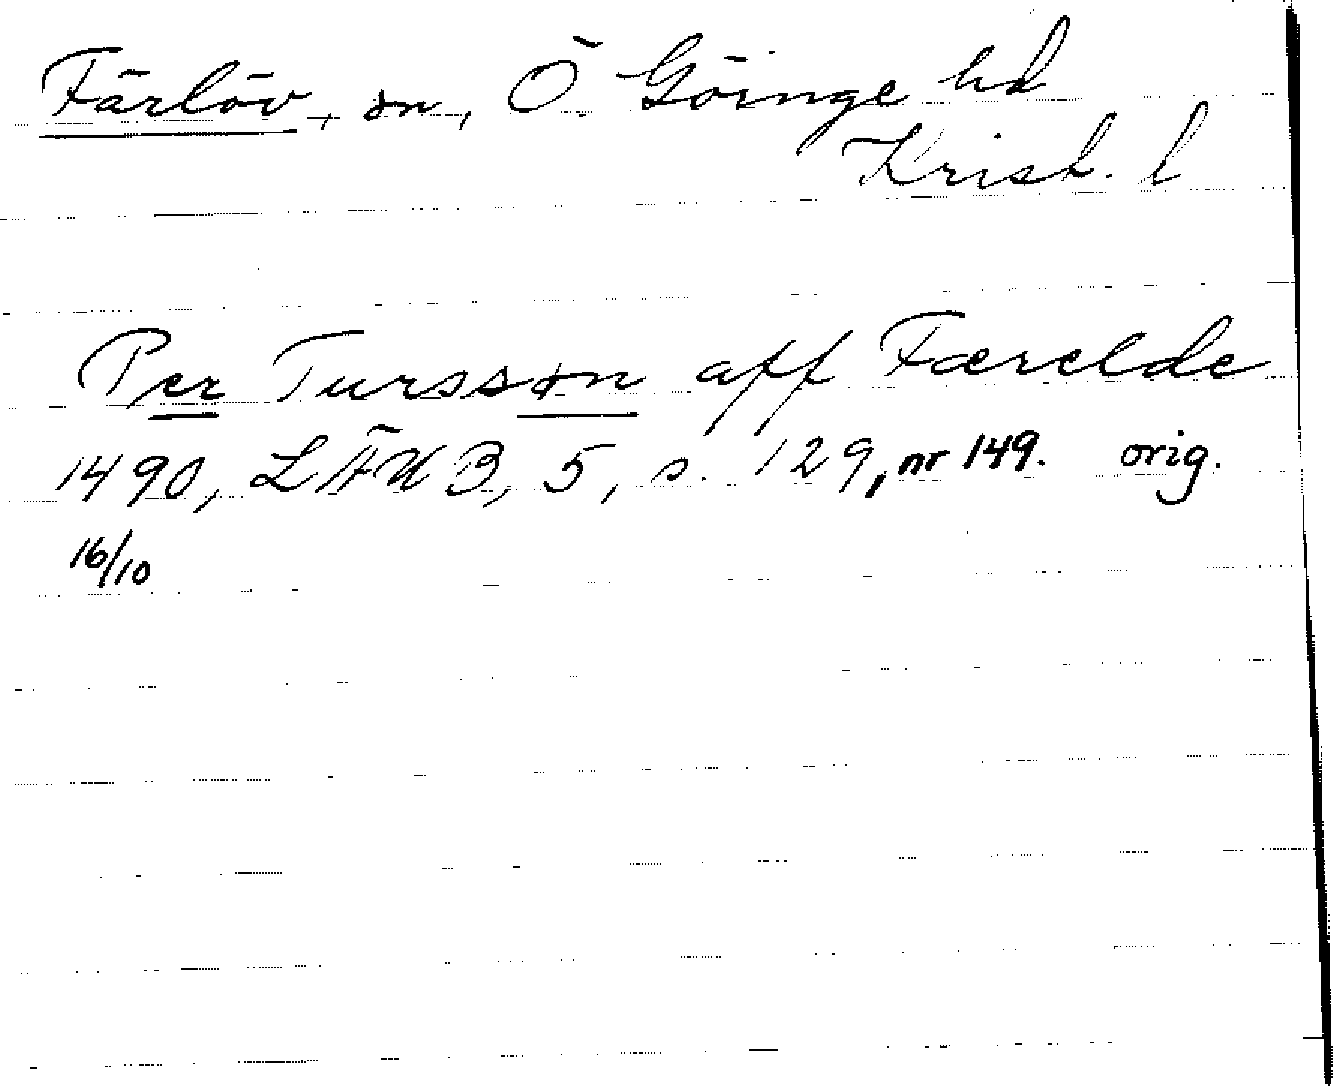 Färlöv, sn, Ö. Göinge hd
Krist. l
Per Turssøn aff Færelde
1490, LÄUB, 5, s. 129, nr 149. orig.
16/10